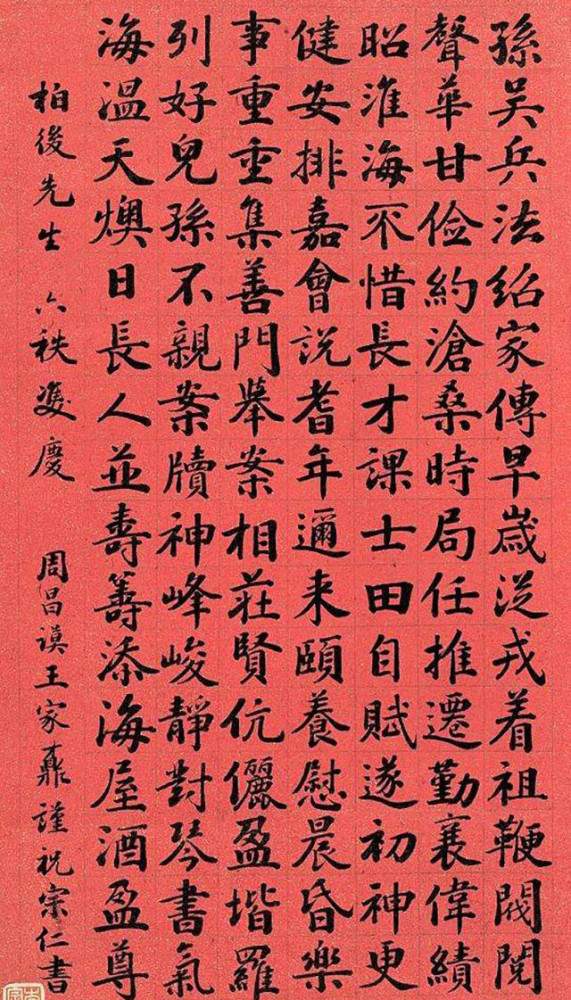 孫吴兵法紹家傳早嵗從戎着祖鞭閥閲
聲華甘儉約滄桑時局任推遷勤襄偉績
昭淮海不惜長才課士田自賦遂初神更
健安排嘉會説耆年邇来頤養慰晨昏樂
事重重集善門舉案相莊賢伉儷盈堦羅
列好兒孫不親案牘神峰峻靜對琴書氣
海温天燠日長人並壽籌添海屋酒盈尊
柏後先生 六秩雙慶 周昌謨王家鼐謹祝宗仁書